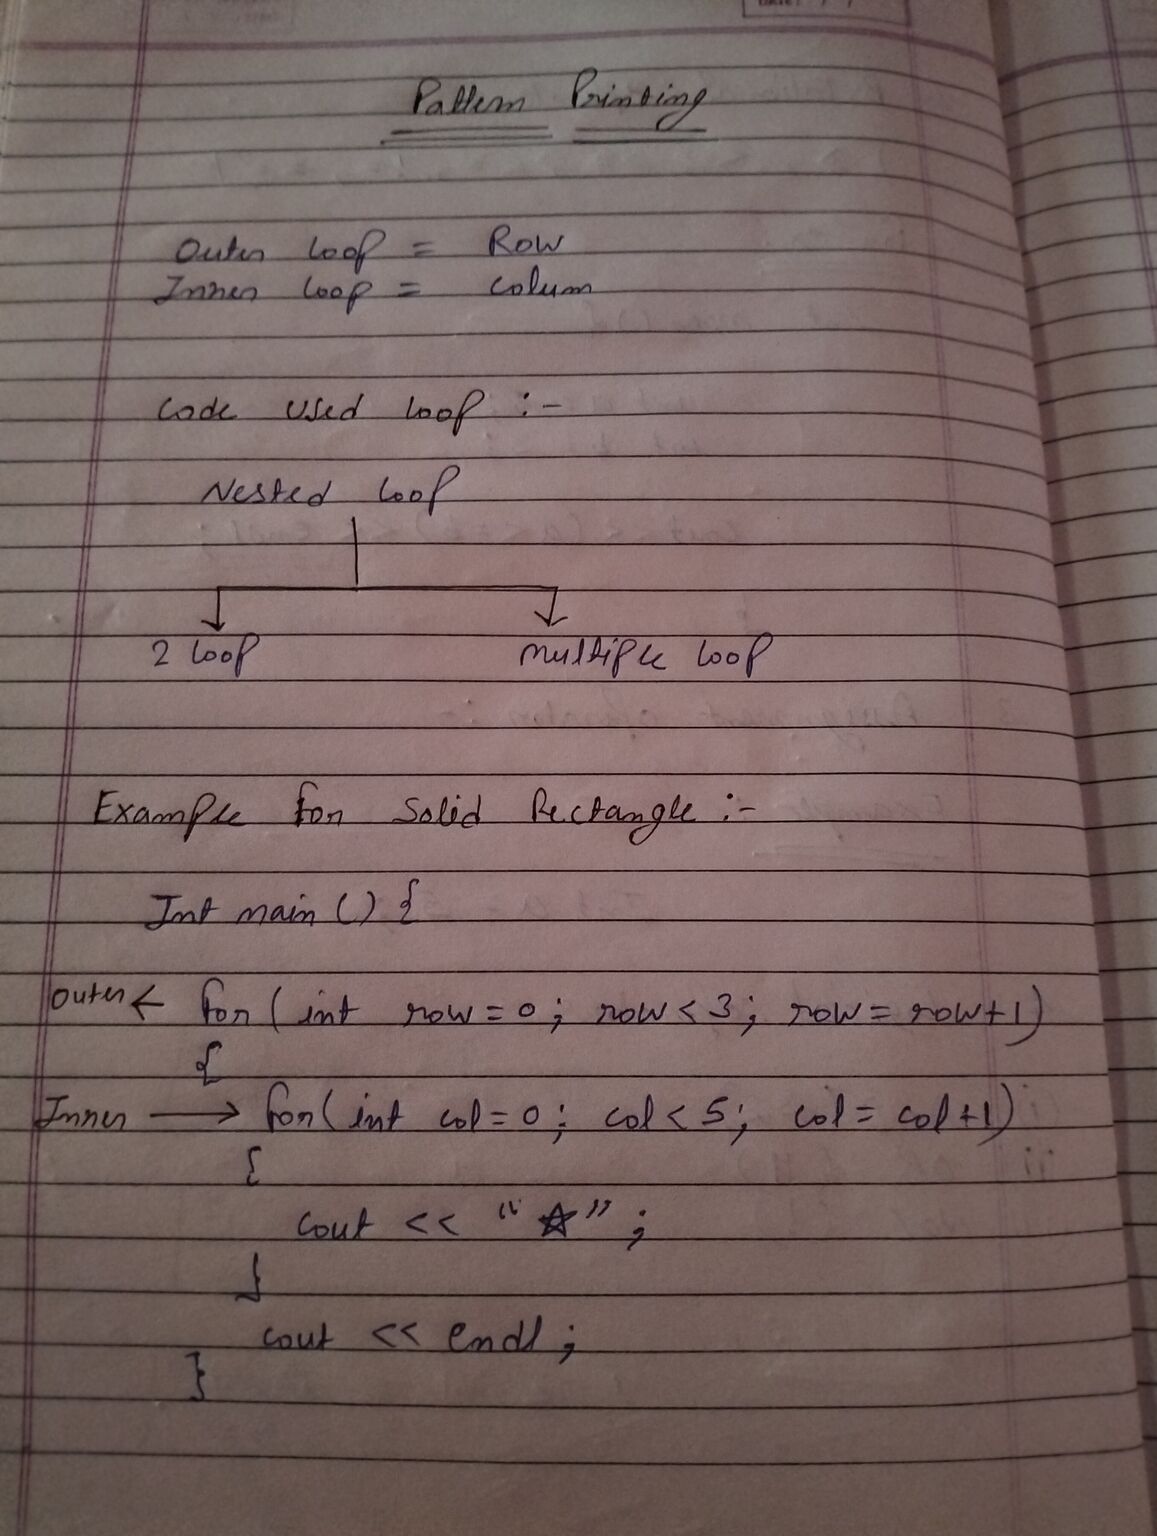 Pattern Printing
Outer loop = Row
Inner loop = Colum
Code Used loop :-
Nested loop
2 loop multiple loop
Example for Solid Rectangle :-
Int main () {
outer ← for ( int row = 0 ; row < 3 ; row = row+1)
{
Inner → for( int col = 0 ; col < 5 ; col = col +1)
{
cout << “☆” ;
}
cout << endl ;
}